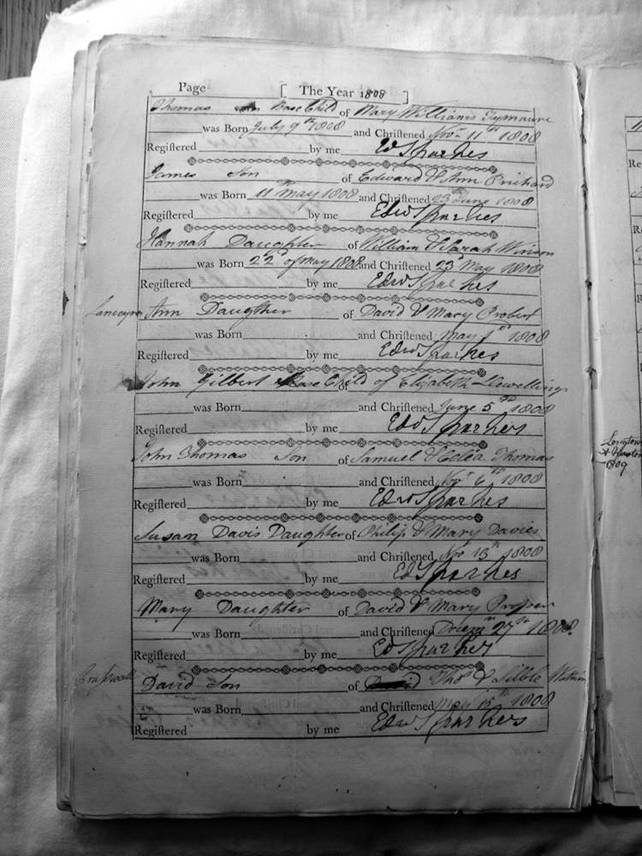 Page [ The Year 1808 ]
Thomas Base Child of Mary Williams Tymawre
was Born July 9th 1808 and Chriſtened Novr 11th 1808
Regiſtered by me Ed Sparkes
James Son of Edward & Ann Prichard
was Born 11th May 1808 and Chriſtened June 1808
Regiſtered by me Edw Sparkes
Hannah Daughter of William & Sarah
was Born 22d of May 1808 and Chriſtened 23d May 1808
Regiſtered by me Edw Sparkes
Ann Daugther of David & Mary Probert
was Born and Chriſtened May 1808
Regiſtered by me Edw Sparkes
John Gilbert Base Child of Elizabeth Llewelling
was Born and Chriſtened June 5th 1808
Regiſtered by me Edw Sparkes
John Thomas Son of Samuel & Thomas
was Born and Chriſtened 6th 1808
Regiſtered by me Edw Sparkes
Susan Davis Daughter of Philip & Mary Davies
was Born and Chriſtened Nov 13th 1808
Regiſtered by me Ed Sparkes
Mary Daughter of David & Mary Prosser
was Born and Chriſtened 27th 1808
Regiſtered by me Ed Sparkes
David Son of Thos & Sibble
was Born and Chriſtened May 15th 1808
Regiſtered by me Edw Sparkes
1809